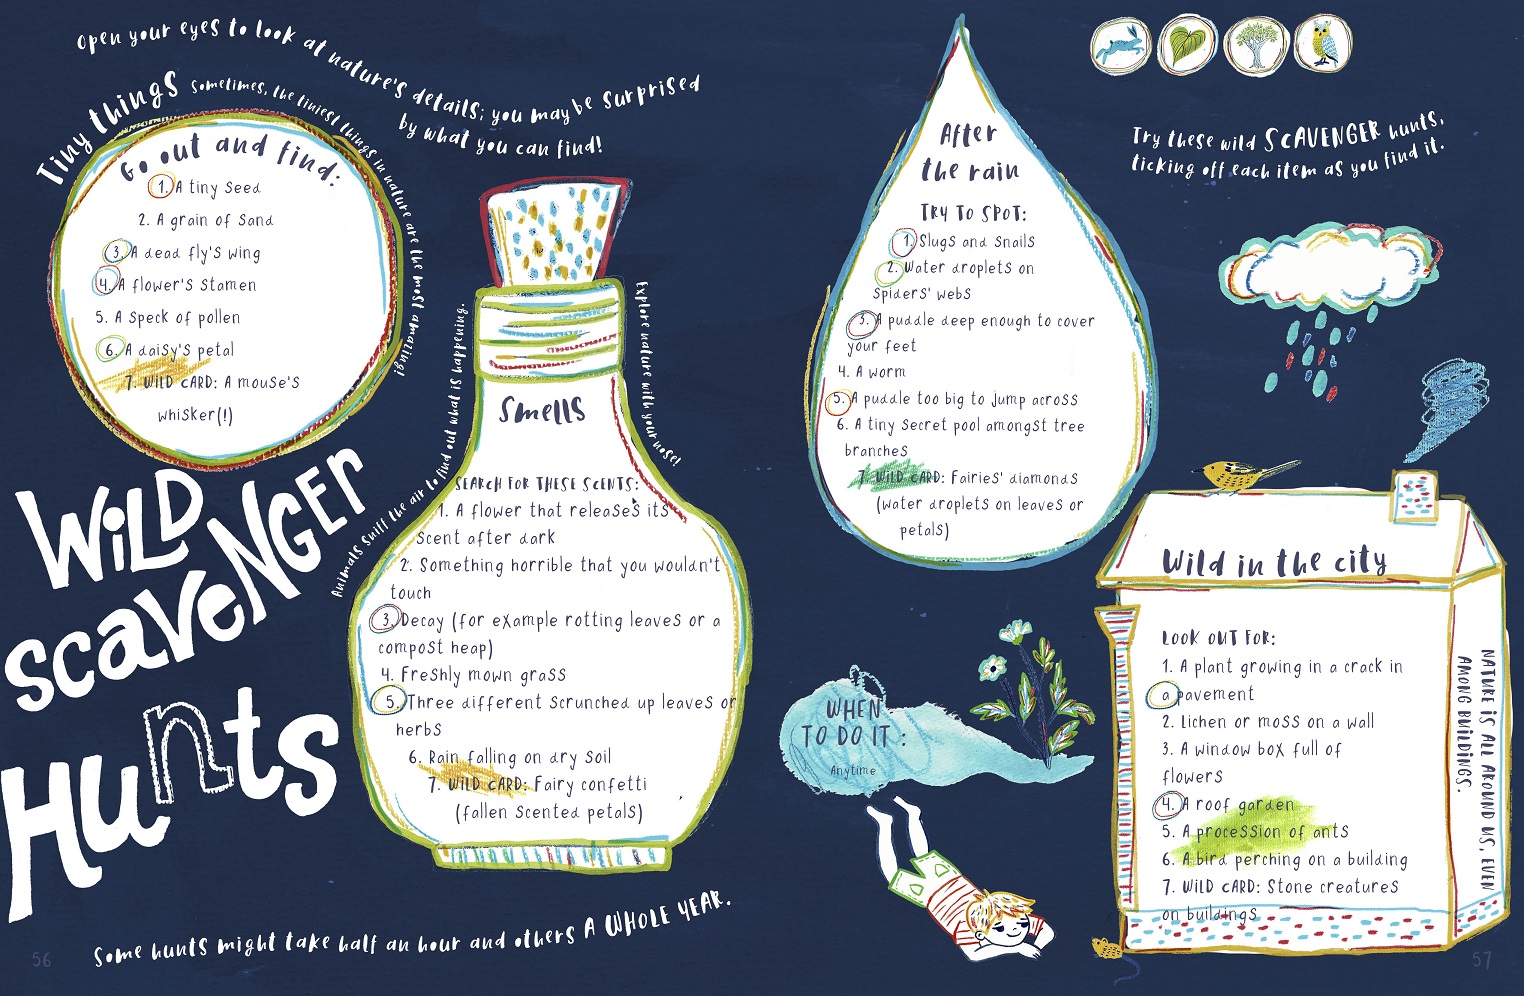 Open your eyes to look at nature's details; you may be surprised
by what you can find!
Tiny things
Sometimes, the tiniest things in nature are the most amazing!
Go out and find:
1. A tiny seed
2. A grain of sand
3. A dead fly's wing
4. A flower's stamen
5. A speck of pollen
6. A daisy's petal
7. WILD CARD: A mouse's
whisker(!)
WILD
SCAVENGER
HUNTS
Animals sniff the air to find out what is happening.
Explore nature with your nose!
Smells
SEARCH FOR THESE SCENTS:
1. A flower that releases its
scent after dark
2. Something horrible that you wouldn't
touch
3. Decay (for example rotting leaves or a
compost heap)
4. Freshly mown grass
5. Three different scrunched up leaves or
herbs
6. Rain falling on dry soil
7. WILD CARD: Fairy confetti
(fallen scented petals)
Some hunts might take half an hour and others A WHOLE YEAR.
56
After
the rain
TRY TO SPOT:
1. Slugs and snails
2. Water droplets on
spiders' webs
3. A puddle deep enough to cover
your feet
4. A worm
5. A puddle too big to jump across
6. A tiny secret pool amongst tree
branches
7. WILD CARD: Fairies' diamonds
(water droplets on leaves or
petals)
Try these wild SCAVENGER hunts,
ticking off each item as you find it.
WHEN
TO DO IT:
Anytime
Wild in the city
LOOK OUT FOR:
1. A plant growing in a crack in
a pavement
2. Lichen or moss on a wall
3. A window box full of
flowers
4. A roof garden
5. A procession of ants
6. A bird perching on a building
7. WILD CARD: Stone creatures
on buildings
NATURE IS ALL AROUND US, EVEN
AMONG BUILDINGS.
57